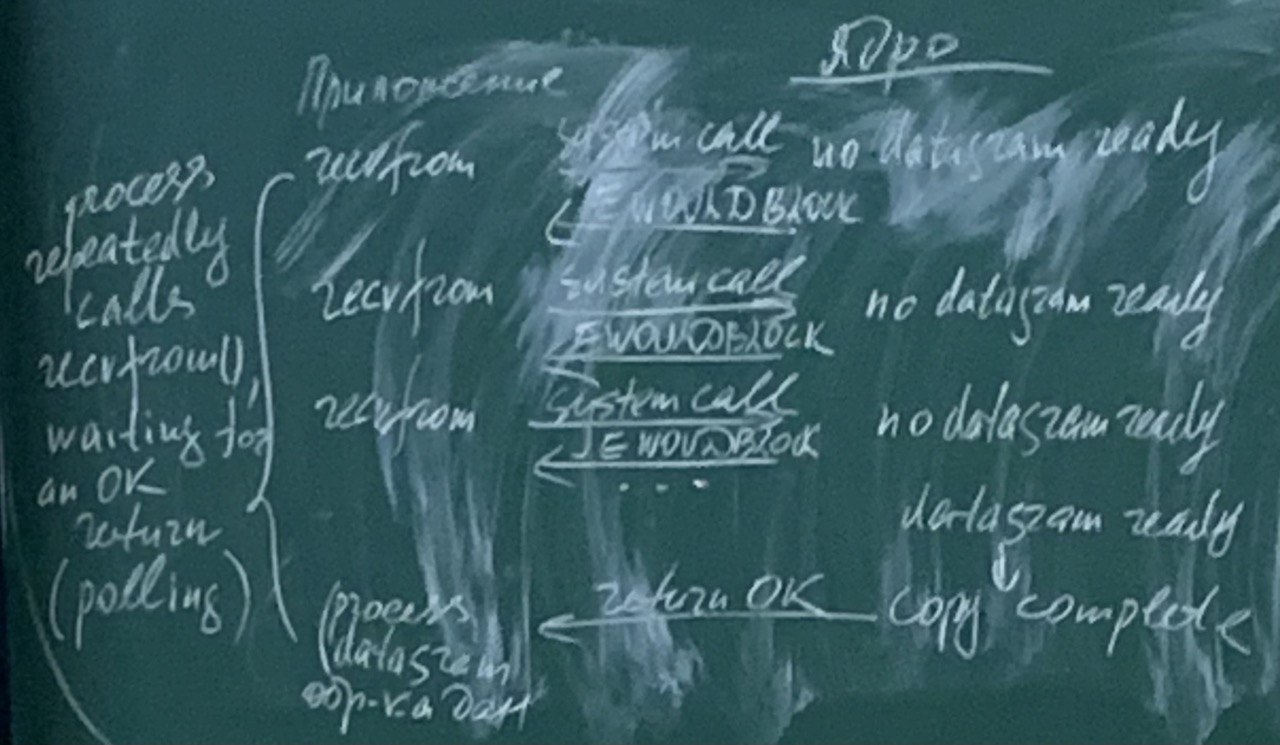 Ядро
Приложение
process
repeatedly
calls
recvfrom(),
waiting for
an OK
return
(polling)
recvfrom system call no datagram ready
EWOULDBLOCK
recvfrom system call no datagram ready
EWOULDBLOCK
recvfrom system call no datagram ready
EWOULDBLOCK
...
datagram ready
return OK copy complete
(process
datagram
обр-ка дан